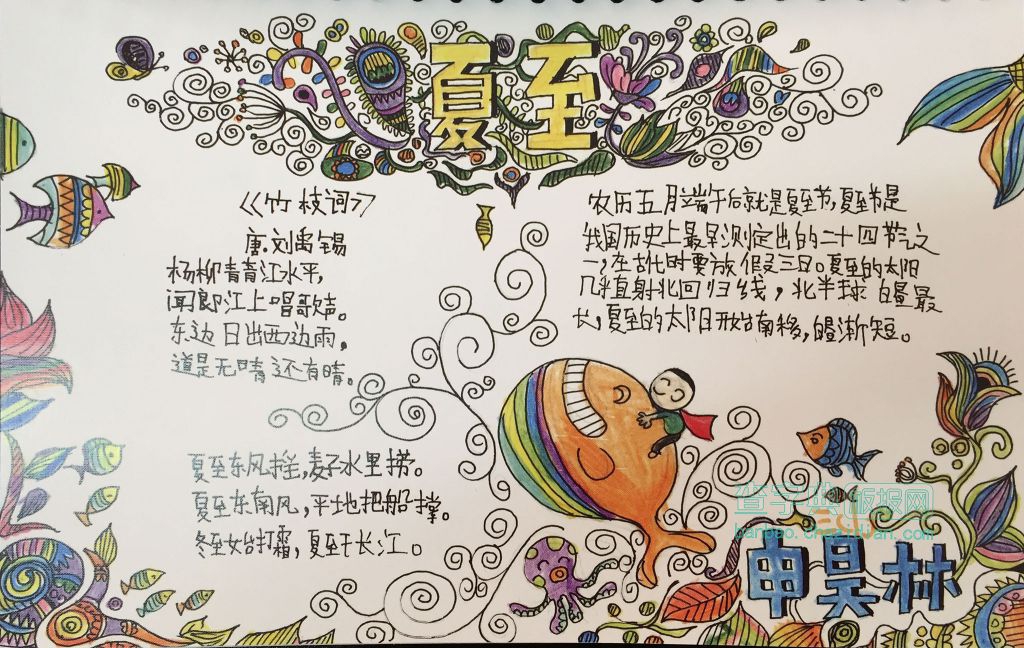 夏至
《竹枝词》
唐.刘禹锡
杨柳青青江水平,
闻郎江上唱歌声。
东边日出西边雨,
道是无晴还有晴。
农历五月端午后就是夏至节,夏至节是
我国历史上最早测定出的二十四节气之
一,在古代时要放假三日。夏至的太阳
几乎直射北回归线,北半球白昼最
长,夏至的太阳开始南移,白昼渐短。
夏至东风摇,麦子水里捞。
夏至东南风,平地把船撑。
冬至始打霜,夏至干长江。
查字典板报网
banbao.chazidian.com
申昊林